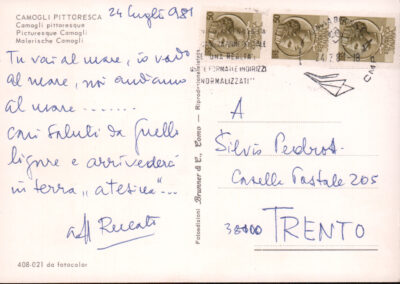 CAMOGLI PITTORESCA
Camogli pittoresque
Picturesque Camogli
Malerische Camogli
24 Luglio 981
Tu vai al mare, io vado
al mare, noi andiamo
al mare ........
con saluti da quelle
ligure e arrivederci
in terra "atesina"...
aff
408-021 da fotocolor
Fotoedizioni Brunner & C., Como - Riproduzione
UNA REALTÀ
FORMARE INDIRIZZI
NORMALIZZATI"
A
Silvio Pedrot.
Casella Postale 205
38100 TRENTO